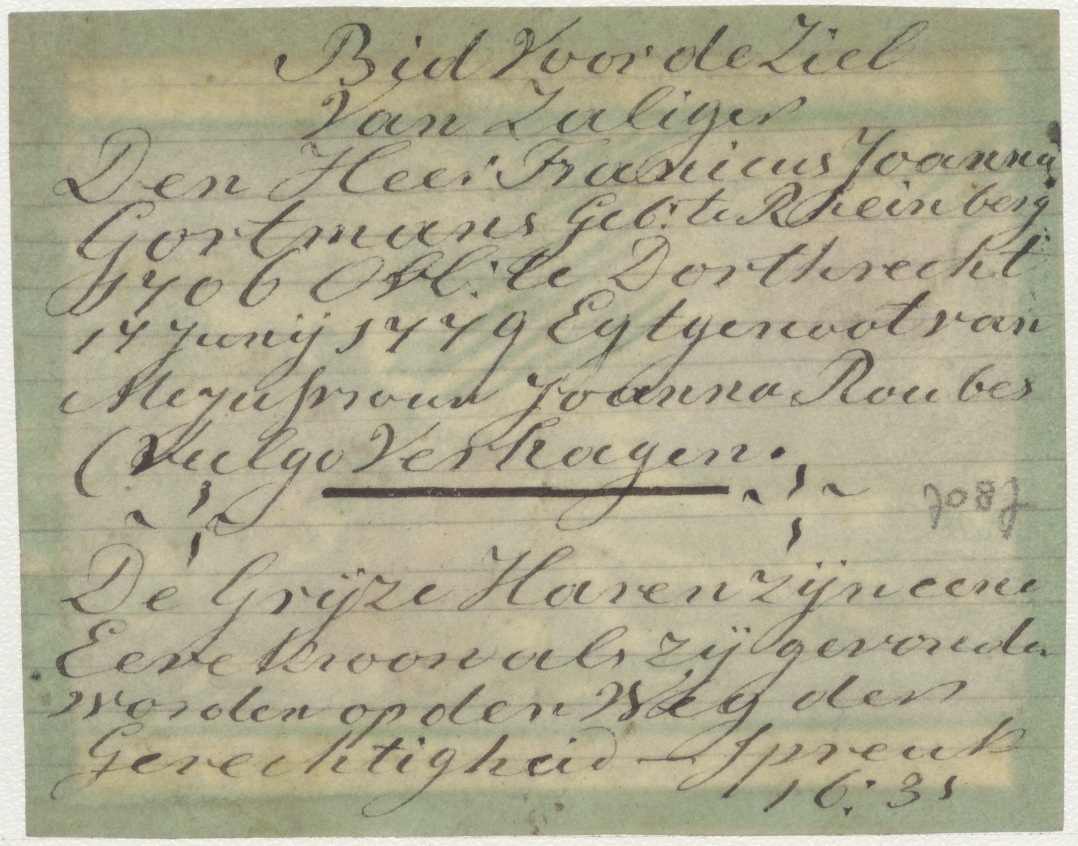 Bid Voor de Ziel
Van Zaliger
Den Heer Franicus Joanna
Gortmans Geb: te Rheinberg
1706 Obl: te Dorthrecht
17 Junij 1779 Egtgenoot van
Mejuffrouw Joanna Roubes
(Vulgo Verhagen.
De Grijze Haren zijn eene
Eere Kroon als zij gevonden
worden op den Weg der
Gerechtigheid - Spreuk
16: 31